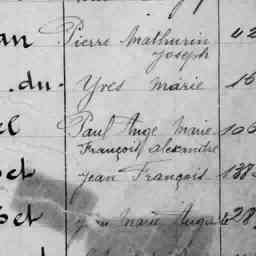 an Pierre Mathurin 42
Joseph
.du. Yves Marie 15
el Paul Ange Marie 106
François Alexandre
et Jean François 138
et Marie